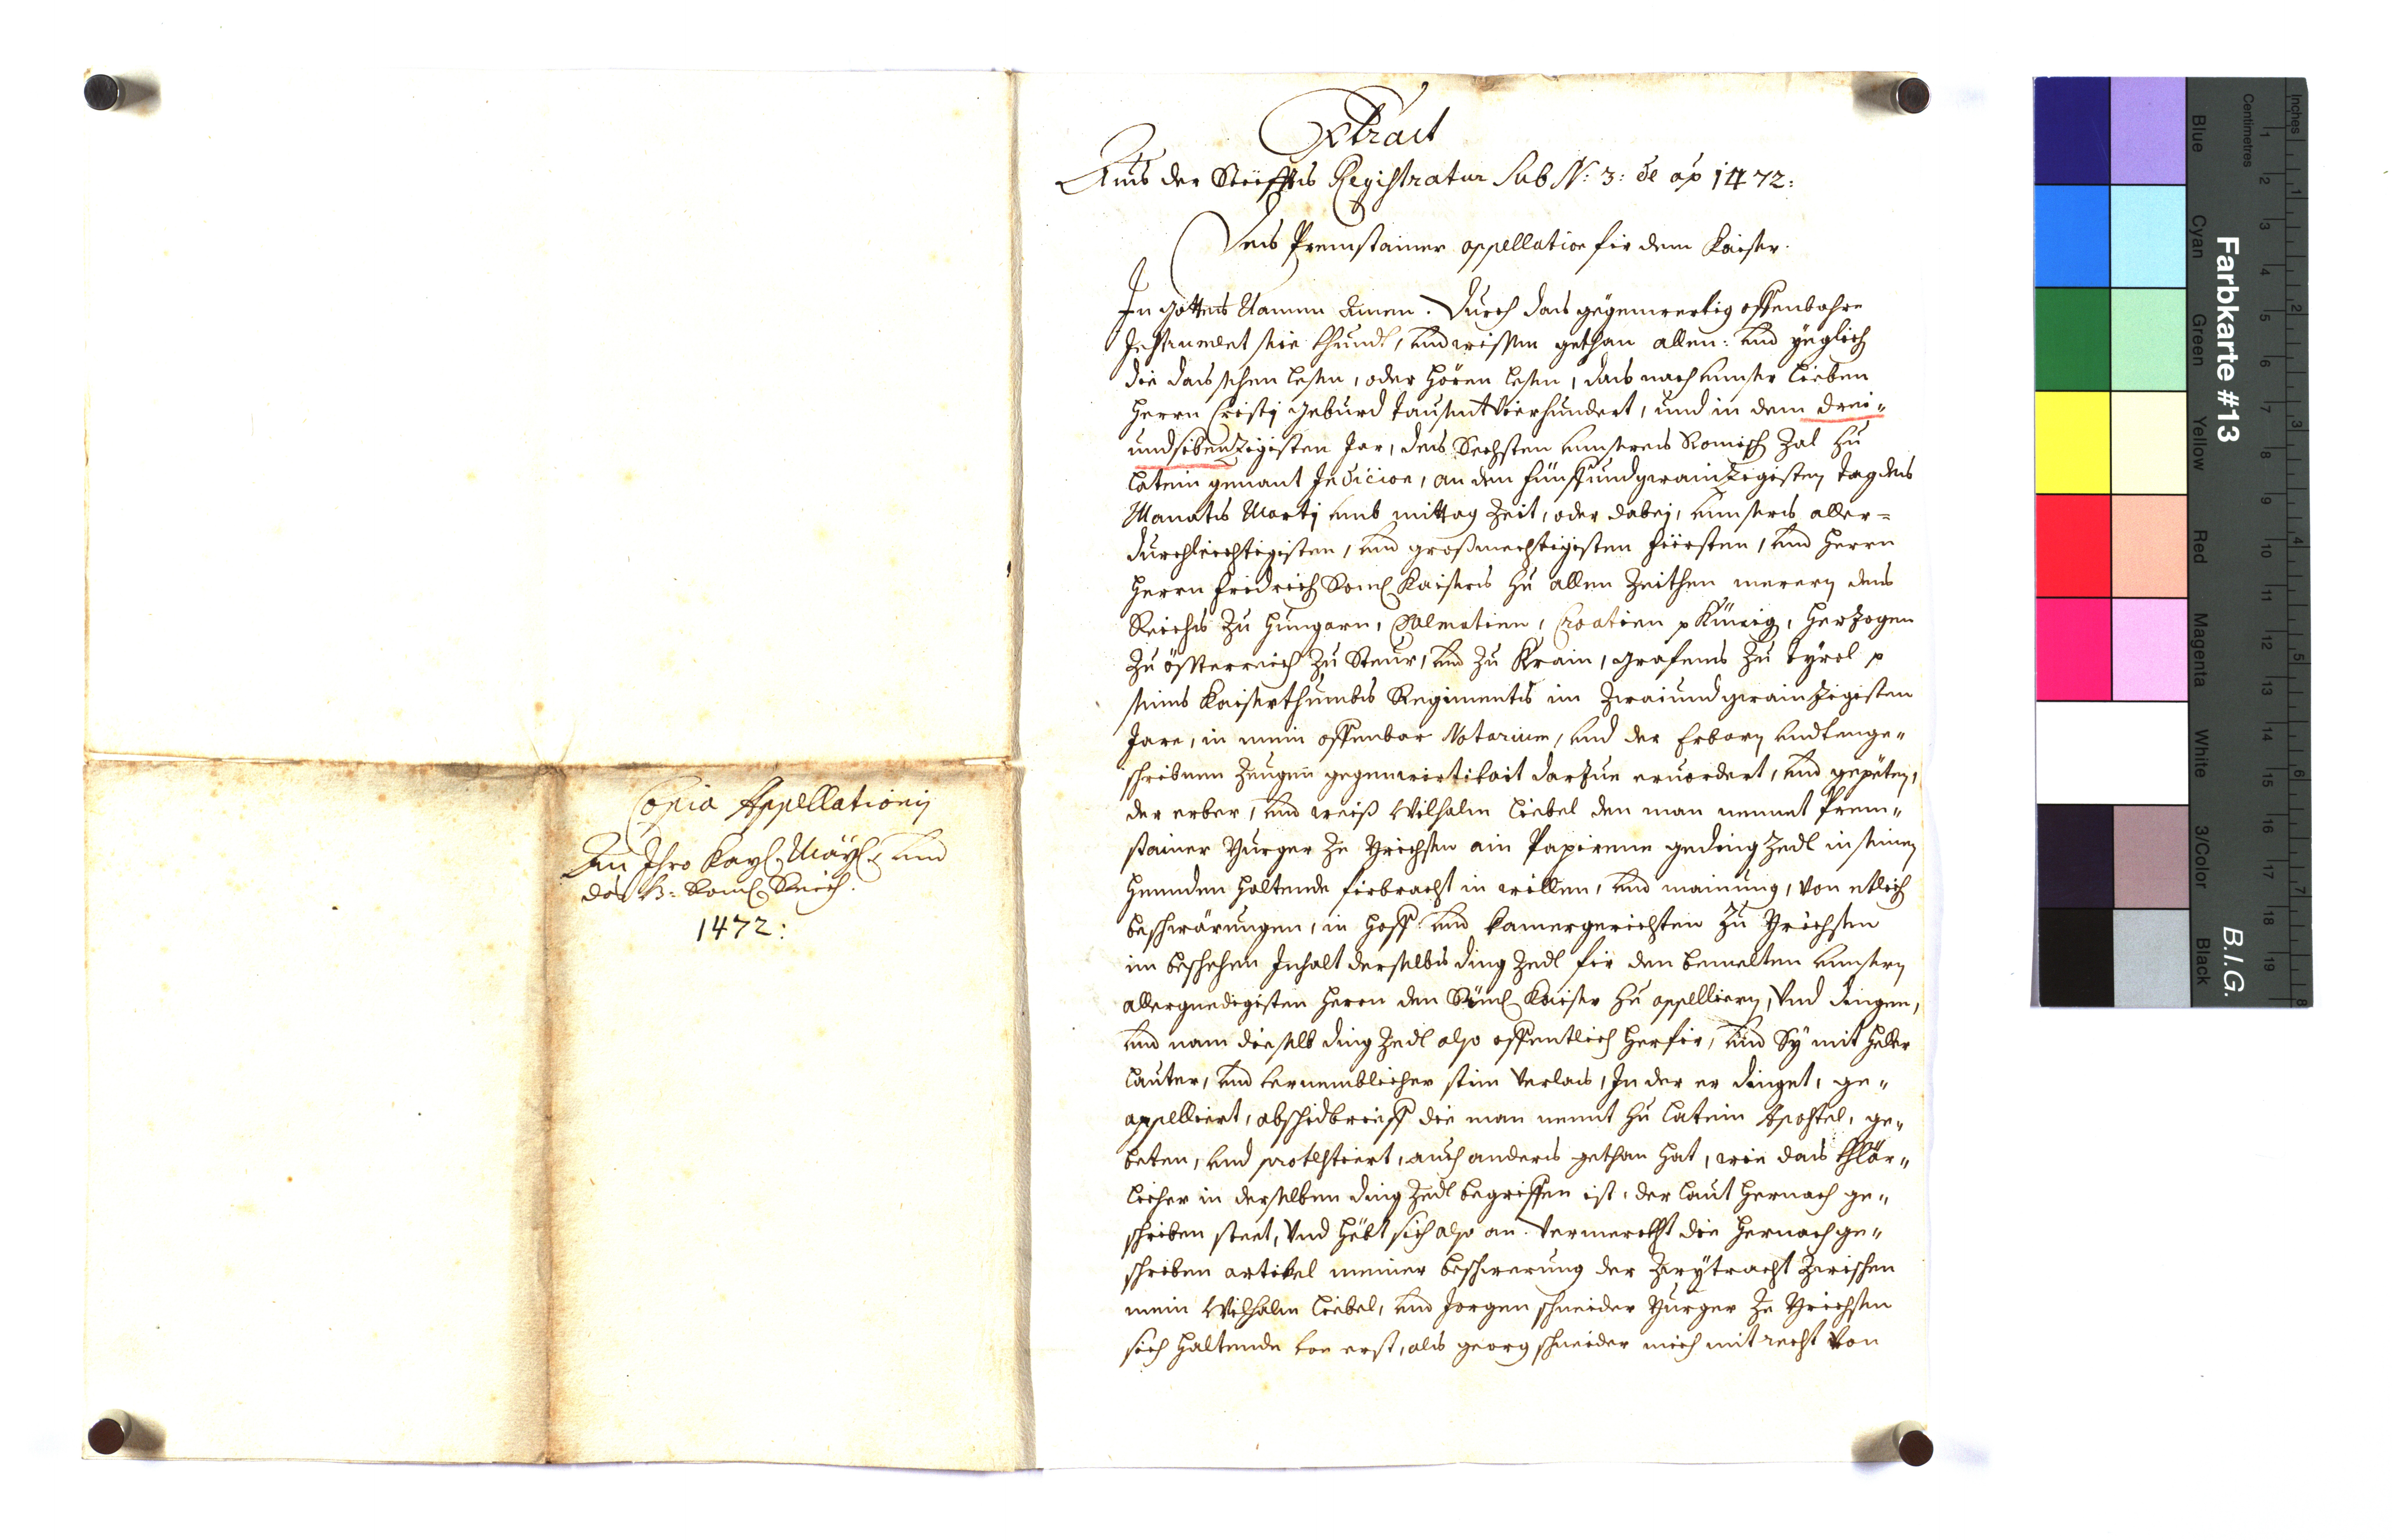 Copia Appellationis
An Ihro Kayl. Mäyl. und
das h: Röml. Reich.
1472:
Extract
Aus der Stüffts Registratur Sub N: 3: de ao 1472:
Des Premstainer appellation fir dem Kaiser.
In Gottes Namen Amen. Durch das gegenwertig offenbahre
Instrument sie khundt, und wissen gethan allen: und yeglich
die das sehen lesen, oder hören lesen, das nach unser lieben
Herrn Cristj geburd tausent vierhundert, und in dem drei„
undsibenzigisten Jar, des Sechsten unsers Romisch Zal zu
latein genant Indicion, an den fünffundzwainzigisten tag des
Monats Martj umb mittag Zeit, oder dabej, unsers aller=
durchleichtigisten, und großmechtigisten fürsten, und Herrn
Herrn Fridrich Röml Kaisers zu allen Zeithen merern des
Reichs zu Hungarn, Dalmatien, Croatien p Künig, Herzogen
zu össterreich zu Steur, und zu Krain, grafens zu tyrol p
seines Kaiserthumbs Regiments im Zwaiundzwainzigisten
Jare, in mein offenbar Notarium, und der Erbarn undtenge„
schribnen Zeugen gegenwirtikait darzue ervordert, und gepeten,
der erber, und weiß Wilhalm Liebel den man nennet Prem„
stainer Burger ze Brichsen ain Papirene geding Zedl in seinen
Hennden haltende firbracht in willen, und mainung, von etlich
beschwärungen, in Hoff und kamergerichten zu Brichsen
im beschehen Inhalt derselbs ding Zedl für den bemelten unsern
allergnedigisten Herrn den Röml Kaiser zu appelliern, und dingen,
und nam dieselb ding Zedl also offentlich herfir, und Sy mit heller
lauter, und vernemblicher stim verlas, In der er dinget, ge„
appelliert, abschidbrieff die man nennt zu latein Apostel, ge„
beten, und protestiert, auch anders gethan hat, wie das khlär„
licher in derselben ding Zedl begriffen ist, der laut hernach ge„
schriben steet, und hebt sich also an. Vermerckht die hernach ge„
schriben artikel meiner beschwerung der Zwytracht zwischen
mein Wilhalm Liebel, und Jorgen schneider Burger ze Brichsen
sich haltende von erst, als georg schneider mich mit recht von